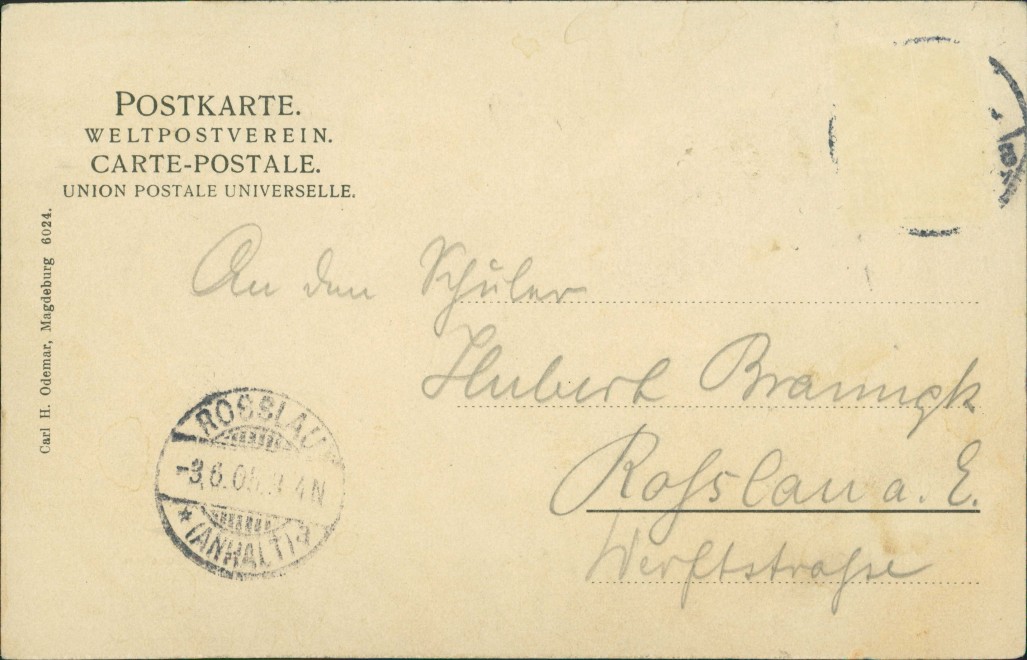 POSTKARTE.
WELTPOSTVEREIN.
CARTE-POSTALE.
UNION POSTALE UNIVERSELLE.
Carl H. Odemar, Magdeburg 6024.
An den Schüler
Hubert
Roßlau a. E.
Werftstraße
ROSSLAU
-3.6.05. 4N
* (ANHALT)